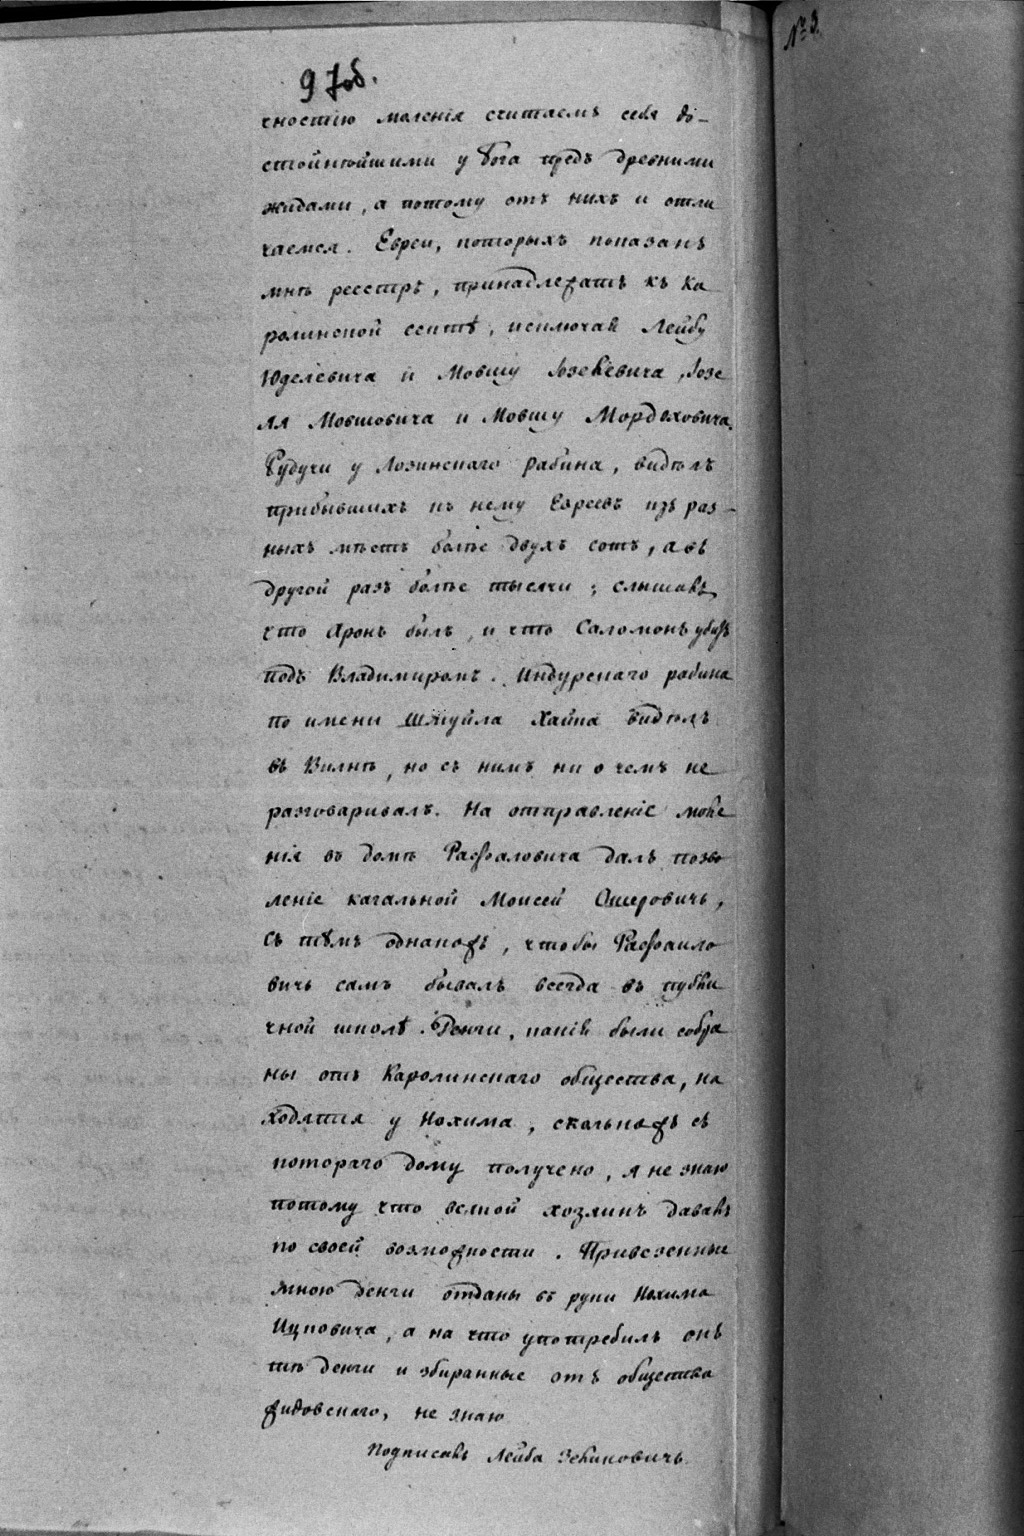 97об.
№ 3.
чностію моленія считаемъ себя до-
стойнѣйшими у бога предъ древними
жидами, а потому отъ нихъ и отли
чаемся. Евреи, которыхъ показанъ
мнѣ реестръ, принадлежатъ къ Ка
ролинской сектѣ, исключая Лейбу
Юделевича и Мовшу Іозелевича, Іозе
ля Мовшовича и Мовшу Мордеховича.
Будучи у Лозинскаго рабина, видѣлъ
прибывшихъ къ нему Евреевъ изъ раз-
ныхъ мѣстъ болѣе двухъ сотъ, а въ
другой разъ болѣе тысячи; слышалъ
что Аронъ былъ, и что Саломонъ убитъ
подъ Владимиромъ. Индурскаго рабина
по имени Шмуйла Хайка видѣлъ
въ Вилнѣ, но съ нимъ ни о чемъ не
разговаривалъ. На отправленіе моле
нія въ домѣ Рафаловича далъ позво
леніе кагальной Моисей Ошеровичъ,
съ тѣмъ однакожъ, чтобы Рафаило
вичъ самъ бывалъ всегда въ публи
чной школѣ. Денги, какія были собра
ны отъ Каролинскаго общества, на
ходятся у Нохима, сколькожъ съ
котораго дому получено, я не знаю
потому что всякой хозяинъ давалъ
по своей возможности. Привезенные
мною денги отданы въ руки Нохима
Ицковича, а на что употребилъ онъ
тѣ денги и збиранные отъ общества
жидовскаго, не знаю
Подписалъ Лейба Зеликовичъ